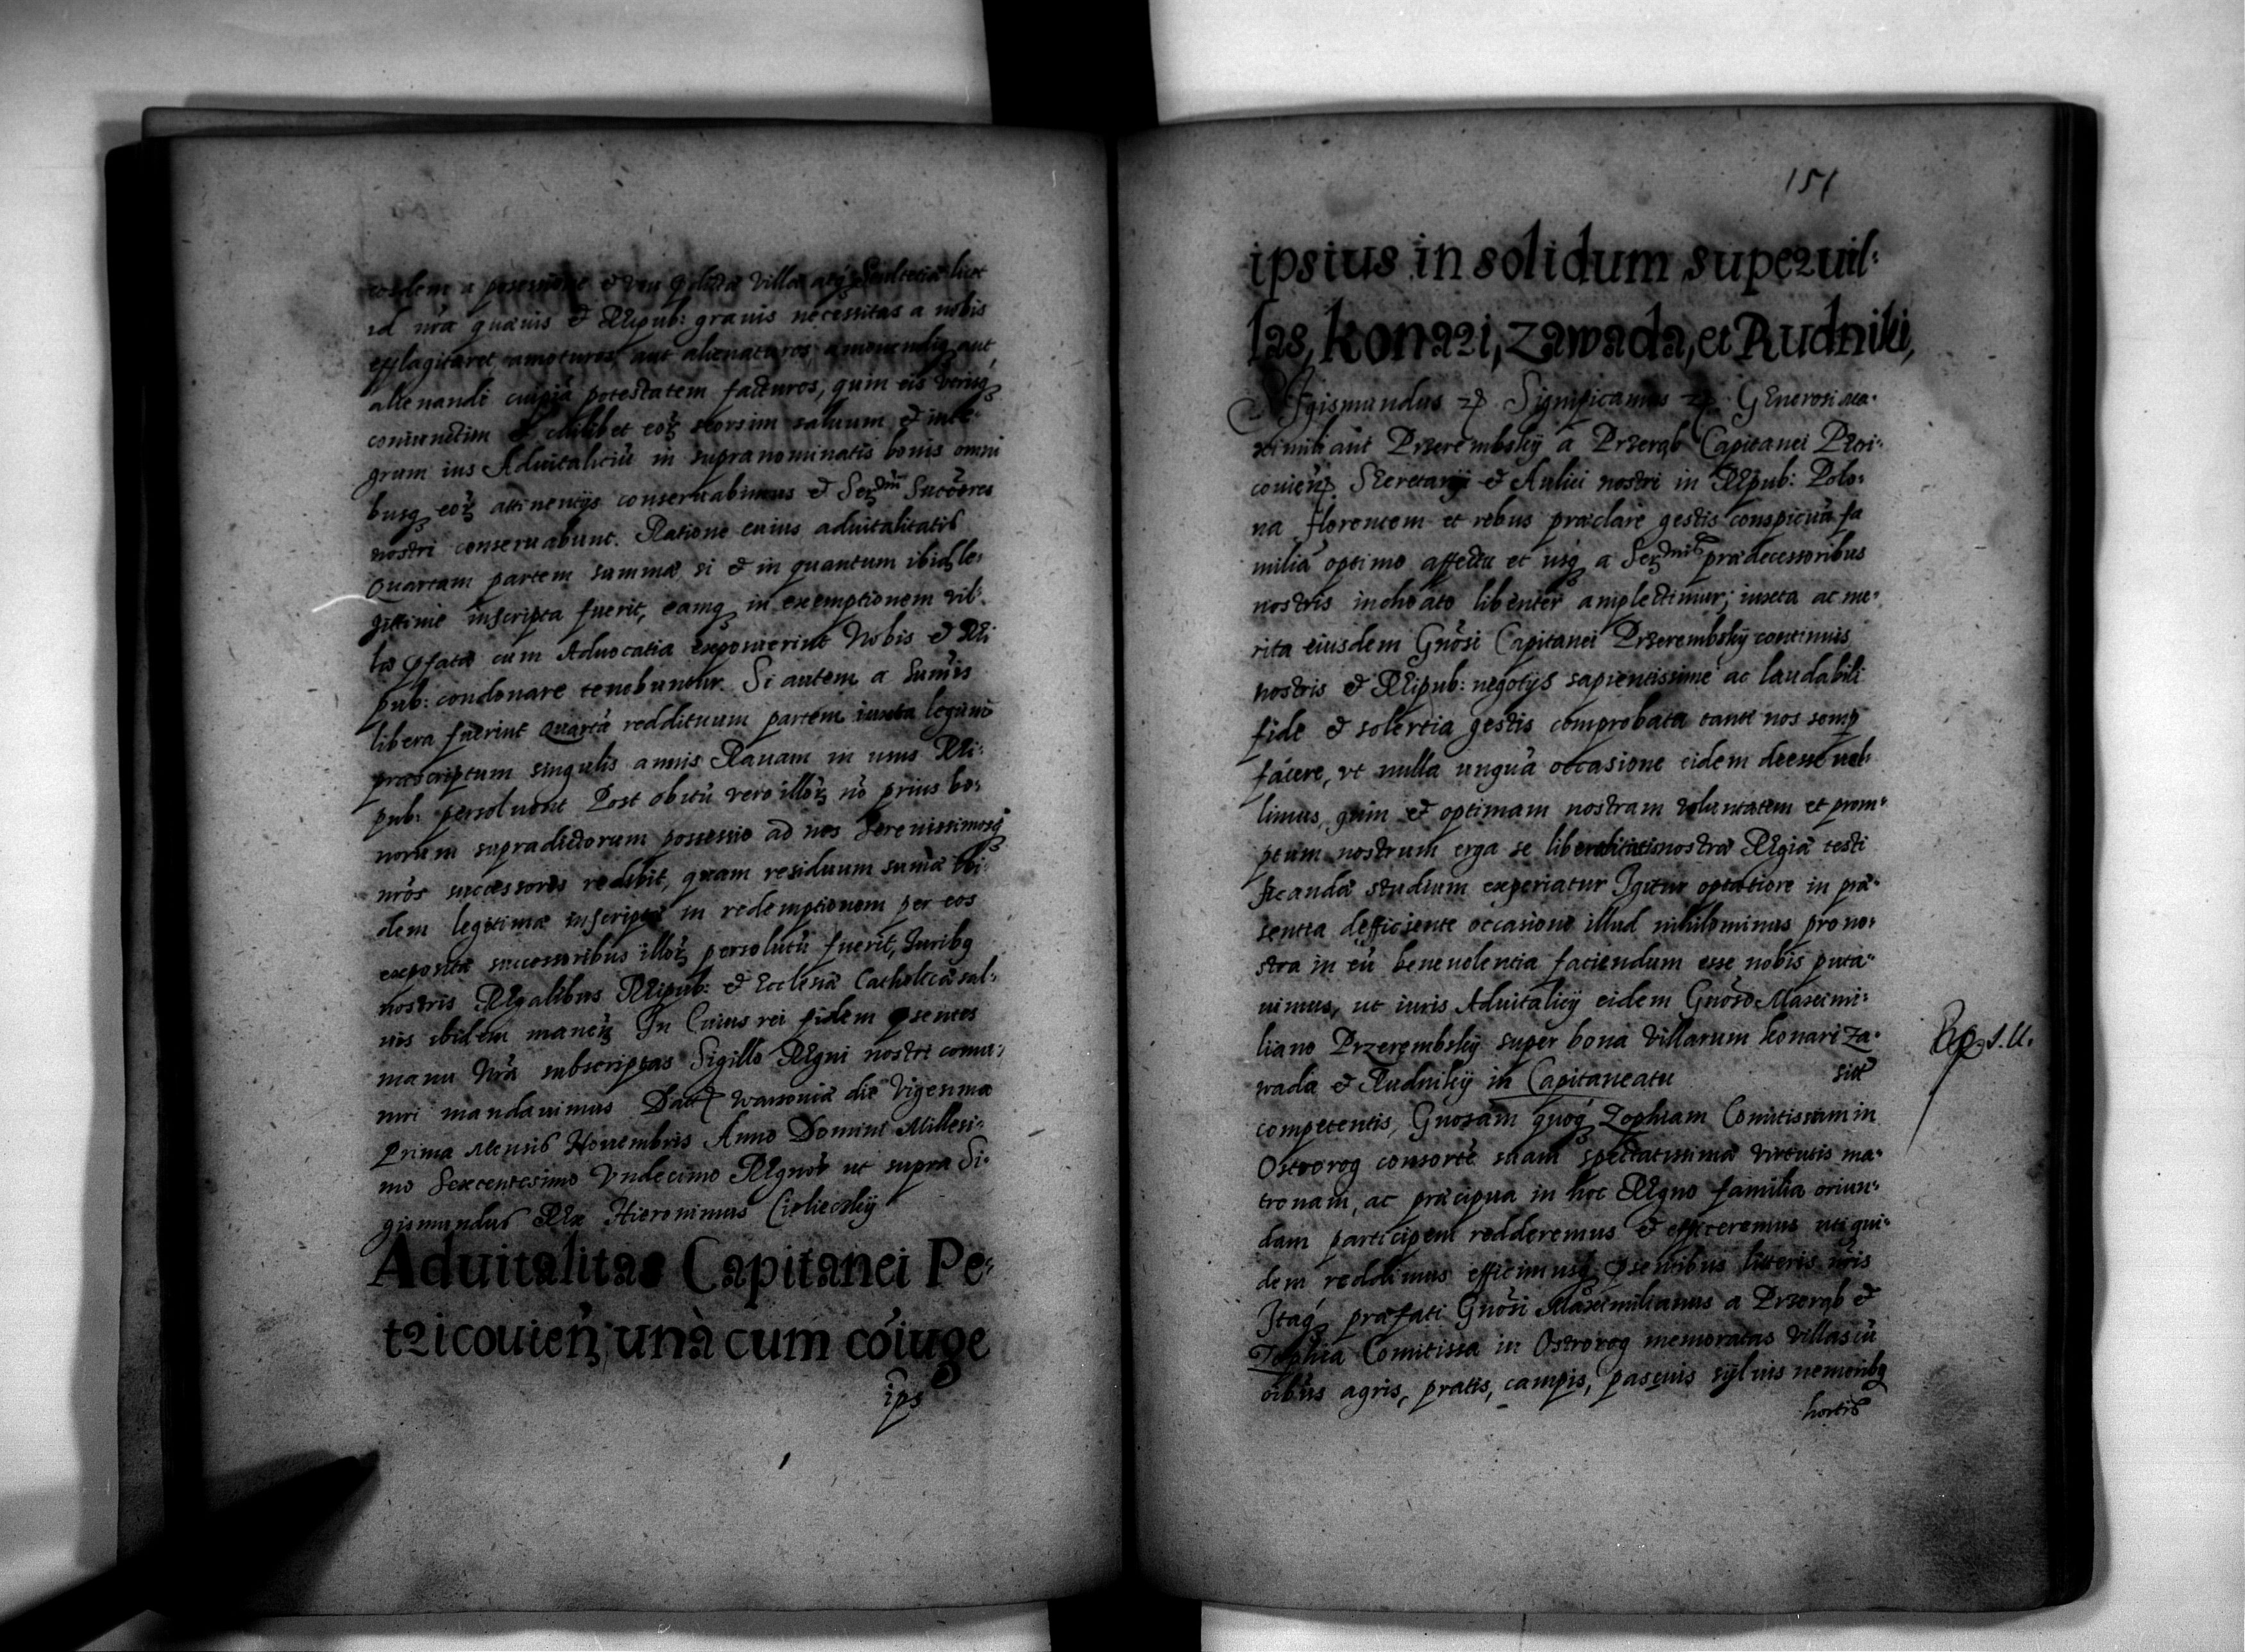 eosdem a possessione et usu pdictæ villæ atq Scultetiæ licet
id nrã quævis et Reipub: gravis necessitas a nobis
efflagitaret amoturos aut alienaturos amovendiq aut
alienandi cuipiã potestatem facturos, quin eis utriusq
coniunctim et cuilibet eorz seorsim salvum et inte-
grum ius Advitaliciũ in supranominatis bonis omni
busq eorz attinentijs conservabimus et Sermi Succres
nostri conservabunt. Ratione cuius advitalitatis
Quartam partem summæ si et in quantum ibid le-
gittime inscripta fuerit, eamq in exemptionem vil-
læ pfatæ cum Advocatia exposuerint Nobis et Rei
pub: condonare tenebuntur. Si autem a Sumis
libera fuerint Quartã reddituum partem iuxta legum
præscriptum singulis annis Ravam in usus Rei-
pub: persolvent Post obitũ vero illorz nõ prius bo-
norum supradictorum possessio ad nos Serenissimosq
nrõs successores redibit, quam residuum sumæ ibi-
dem legitimæ inscriptæ in redemptionem per eos
expositæ successoribus illorz persolutũ fuerit, Iuribq
nostris Regalibus Reipub: et Ecclesiæ Catholicæ sal-
vis ibidem manenz In Cuius rei fidem psentes
manu Nrã subscriptas Sigillo Regni nostri comu-
niri mandavimus Dat Warsoviæ die Vigesima
Prima Mensis Novembris Anno Domini Millesi-
mo Sexcentesimo Undecimo Regnor ut supra Si-
gismundus Rex Hieronimus Cielieczkij
Aduitalitas Capitanei Pe-
tricouienz unà cum cõiuge
ips
151
ipsius in solidum super uil-
las, Konari, Zawada, et Rudniki,
Sigismundus zp Significamus zp. Generosi Ma-
ximiliani Przerembskij a Przerąb Capitanei Petri-
coviens Secretarij et Aulici nostri in Repub: Polo-
na florentem et rebus præclare gestis conspicuã fa
miliã optimo affectu et usq a Sermis prædecessoribus
nostris inchoato libenter amplectimur; iuxta ac me-
rita eiusdem Gnõsi Capitanei Przerembskij continuis
nostris et Reipub: negotijs sapientissime ac laudabili
fide et solertia gestis comprobata tanti nos semp
facere, vt nulla unquã occasione eidem deesse vel-
limus, quin et optimam nostram voluntatem et prom-
ptum nostrum erga se liberalitatis nostræ Regiæ testi
ficandæ studium experiatur Igitur optatiore in præ-
sentia defficiente occasione illud nihilominus pro no-
stra in eũ benevolentia faciendum esse nobis puta-
uimus, ut iuris Advitalicij eidem Gnõso Maximi-
liano Przerembskij super bona Villarum Konari Za-
wada et Rudnikij in Capitaneatu sitis
competentis, Gnosam quoq Zophiam Comitissam in
Ostrorog consortẽ suam spectatissimæ virtutis ma-
tronam, ac præcipua in hoc Regno familia oriun-
dam participem redderemus et efficeremus uti qui-
dem reddimus efficimusq psentibus litteris nris
Itaq præfati Gnõsi Maximilianus a Przerąb et
Zophia Comitissa in Ostrorog memoratas villas cũ
oibus agris, pratis, campis, pascuis sylvis nemoribq
hortis